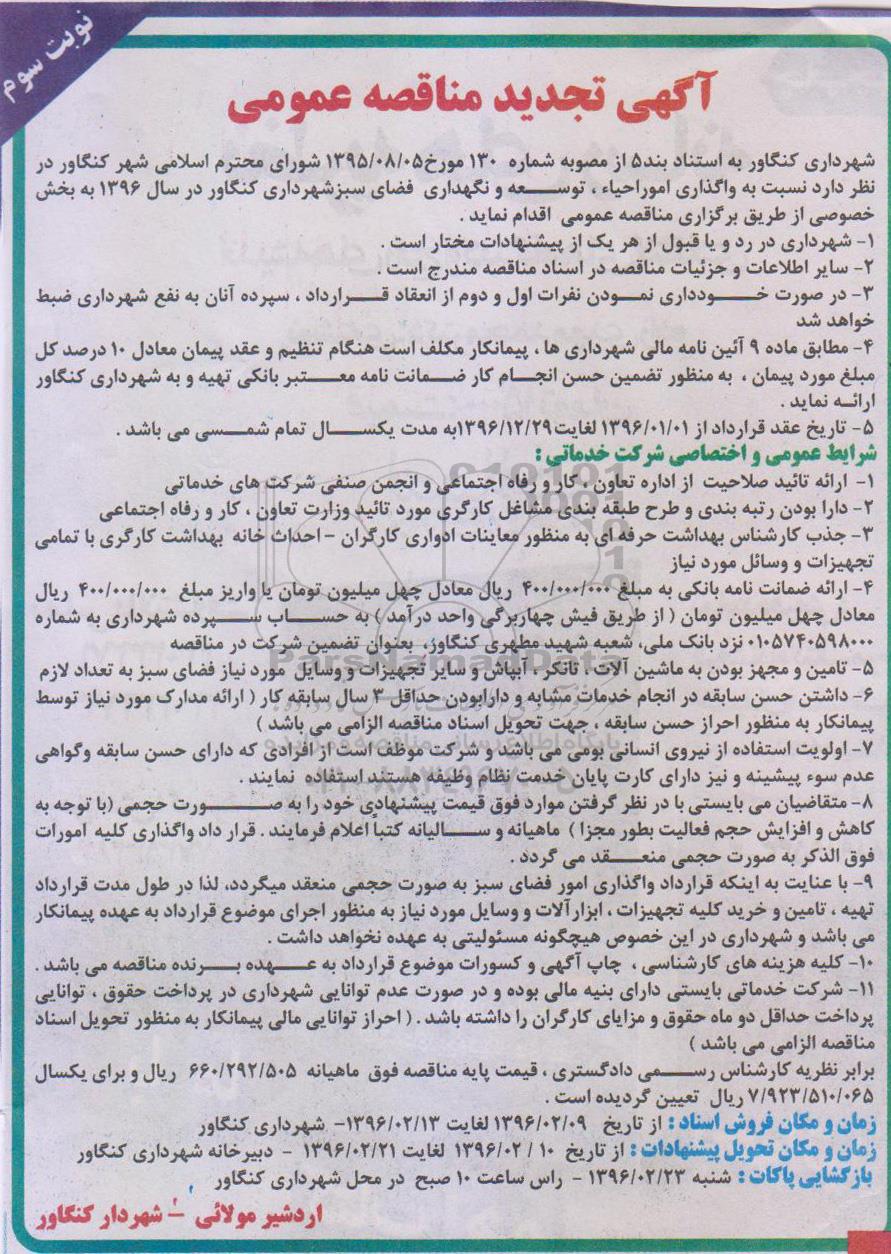 نوبت سوم
آگهی تجدید مناقصه عمومی
شهرداری کنگاور به استناد بند۵ از مصوبه شماره ۱۳۰ مورخ۱۳۹۵/۰۸/۰۵ شورای محترم اسلامی شهر کنگاور در
نظر دارد نسبت به واگذاری اموراحیاء ، توسعه و نگهداری فضای سبزشهرداری کنگاور در سال ۱۳۹۶ به بخش
خصوصی از طریق برگزاری مناقصه عمومی اقدام نماید .
۱- شهرداری در رد و یا قبول از هر یک از پیشنهادات مختار است .
۲- سایر اطلاعات و جزئیات مناقصه در اسناد مناقصه مندرج است .
۳- در صورت خودداری نمودن نفرات اول و دوم از انعقاد قرارداد ، سپرده آنان به نفع شهرداری ضبط
خواهد شد
۴- مطابق ماده ۹ آئین نامه مالی شهرداری ها ، پیمانکار مکلف است هنگام تنظیم و عقد پیمان معادل ۱۰ درصد کل
مبلغ مورد پیمان ، به منظور تضمین حسن انجام کار ضمانت نامه معتبر بانکی تهیه و به شهرداری کنگاور
ارائه نماید .
۵- تاریخ عقد قرارداد از ۱۳۹۶/۰۱/۰۱ لغایت۱۳۹۶/۱۲/۲۹به مدت یکسال تمام شمسی می باشد .
شرایط عمومی و اختصاصی شرکت خدماتی :
۱- ارائه تائید صلاحیت از اداره تعاون ، کار و رفاه اجتماعی و انجمن صنفی شرکت های خدماتی
۲- دارا بودن رتبه بندی و طرح طبقه بندی مشاغل کارگری مورد تائید وزارت تعاون ، کار و رفاه اجتماعی
۳- جذب کارشناس بهداشت حرفه ای به منظور معاینات ادواری کارگران – احداث خانه بهداشت کارگری با تمامی
تجهیزات و وسائل مورد نیاز
۴- ارائه ضمانت نامه بانکی به مبلغ ۴۰۰/۰۰۰/۰۰۰ ریال معادل چهل میلیون تومان یا واریز مبلغ ۴۰۰/۰۰۰/۰۰۰ ریال
معادل چهل میلیون تومان ( از طریق فیش چهاربرگی واحد درآمد ) به حساب سپرده شهرداری به شماره
۰۱۰۵۷۴۰۵۹۸۰۰۰ نزد بانک ملی، شعبه شهید مطهری کنگاوز، بعنوان تضمین شرکت در مناقصه
۵- تامین و مجهز بودن به ماشین آلات ، تانکر ، آبپاش و سایر تجهیزات و وسایل مورد نیاز فضای سبز به تعداد لازم
۶- داشتن حسن سابقه در انجام خدمات مشابه و دارابودن حداقل ۳ سال سابقه کار ( ارائه مدارک مورد نیاز توسط
پیمانکار به منظور احراز حسن سابقه ، جهت تحویل اسناد مناقصه الزامی می باشد )
۷- اولویت استفاده از نیروی انسانی بومی می باشد و شرکت موظف است از افرادی که دارای حسن سابقه وگواهی
عدم سوء پیشینه و نیز دارای کارت پایان خدمت نظام وظیفه هستند استفاده نمایند .
۸- متقاضیان می بایستی با در نظر گرفتن موارد فوق قیمت پیشنهادی خود را به صورت حجمی (با توجه به
کاهش و افزایش حجم فعالیت بطور مجزا ) ماهیانه و سالیانه کتباً اعلام فرمایند . قرار داد واگذاری کلیه امورات
فوق الذکر به صورت حجمی منعقد می گردد .
۹- با عنایت به اینکه قرارداد واگذاری امور فضای سبز به صورت حجمی منعقد میگردد، لذا در طول مدت قرارداد
تهیه ، تامین و خرید کلیه تجهیزات ، ابزارآلات و وسایل مورد نیاز به منظور اجرای موضوع قرارداد به عهده پیمانکار
می باشد و شهرداری در این خصوص هیچگونه مسئولیتی به عهده نخواهد داشت .
۱۰- کلیه هزینه های کارشناسی ، چاپ آگهی و کسورات موضوع قرارداد به عهده برنده مناقصه می باشد .
۱۱- شرکت خدماتی بایستی دارای بنیه مالی بوده و در صورت عدم توانایی شهرداری در پرداخت حقوق ، توانایی
پرداخت حداقل دو ماه حقوق و مزایای کارگران را داشته باشد . ( احراز توانایی مالی پیمانکار به منظور تحویل اسناد
مناقصه الزامی می باشد )
برابر نظریه کارشناس رسمی دادگستری ، قیمت پایه مناقصه فوق ماهیانه ۶۶۰/۲۹۲/۵۰۵ ریال و برای یکسال
۷/۹۲۳/۵۱۰/۰۶۵ ریال تعیین گردیده است .
زمان و مکان فروش اسناد : از تاریخ ۱۳۹۶/۰۲/۰۹ لغایت ۱۳۹۶/۰۲/۱۳- شهرداری کنگاور
زمان و مکان تحویل پیشنهادات : از تاریخ ۱۰ / ۱۳۹۶/۰۲ لغایت ۱۳۹۶/۰۲/۲۱ - دبیرخانه شهرداری کنگاور
بازگشایی پاکات : شنبه ۱۳۹۶/۰۲/۲۳ - راس ساعت ۱۰ صبح در محل شهرداری کنگاور
اردشیر مولائی – شهردار کنگاور
ParsNamadData